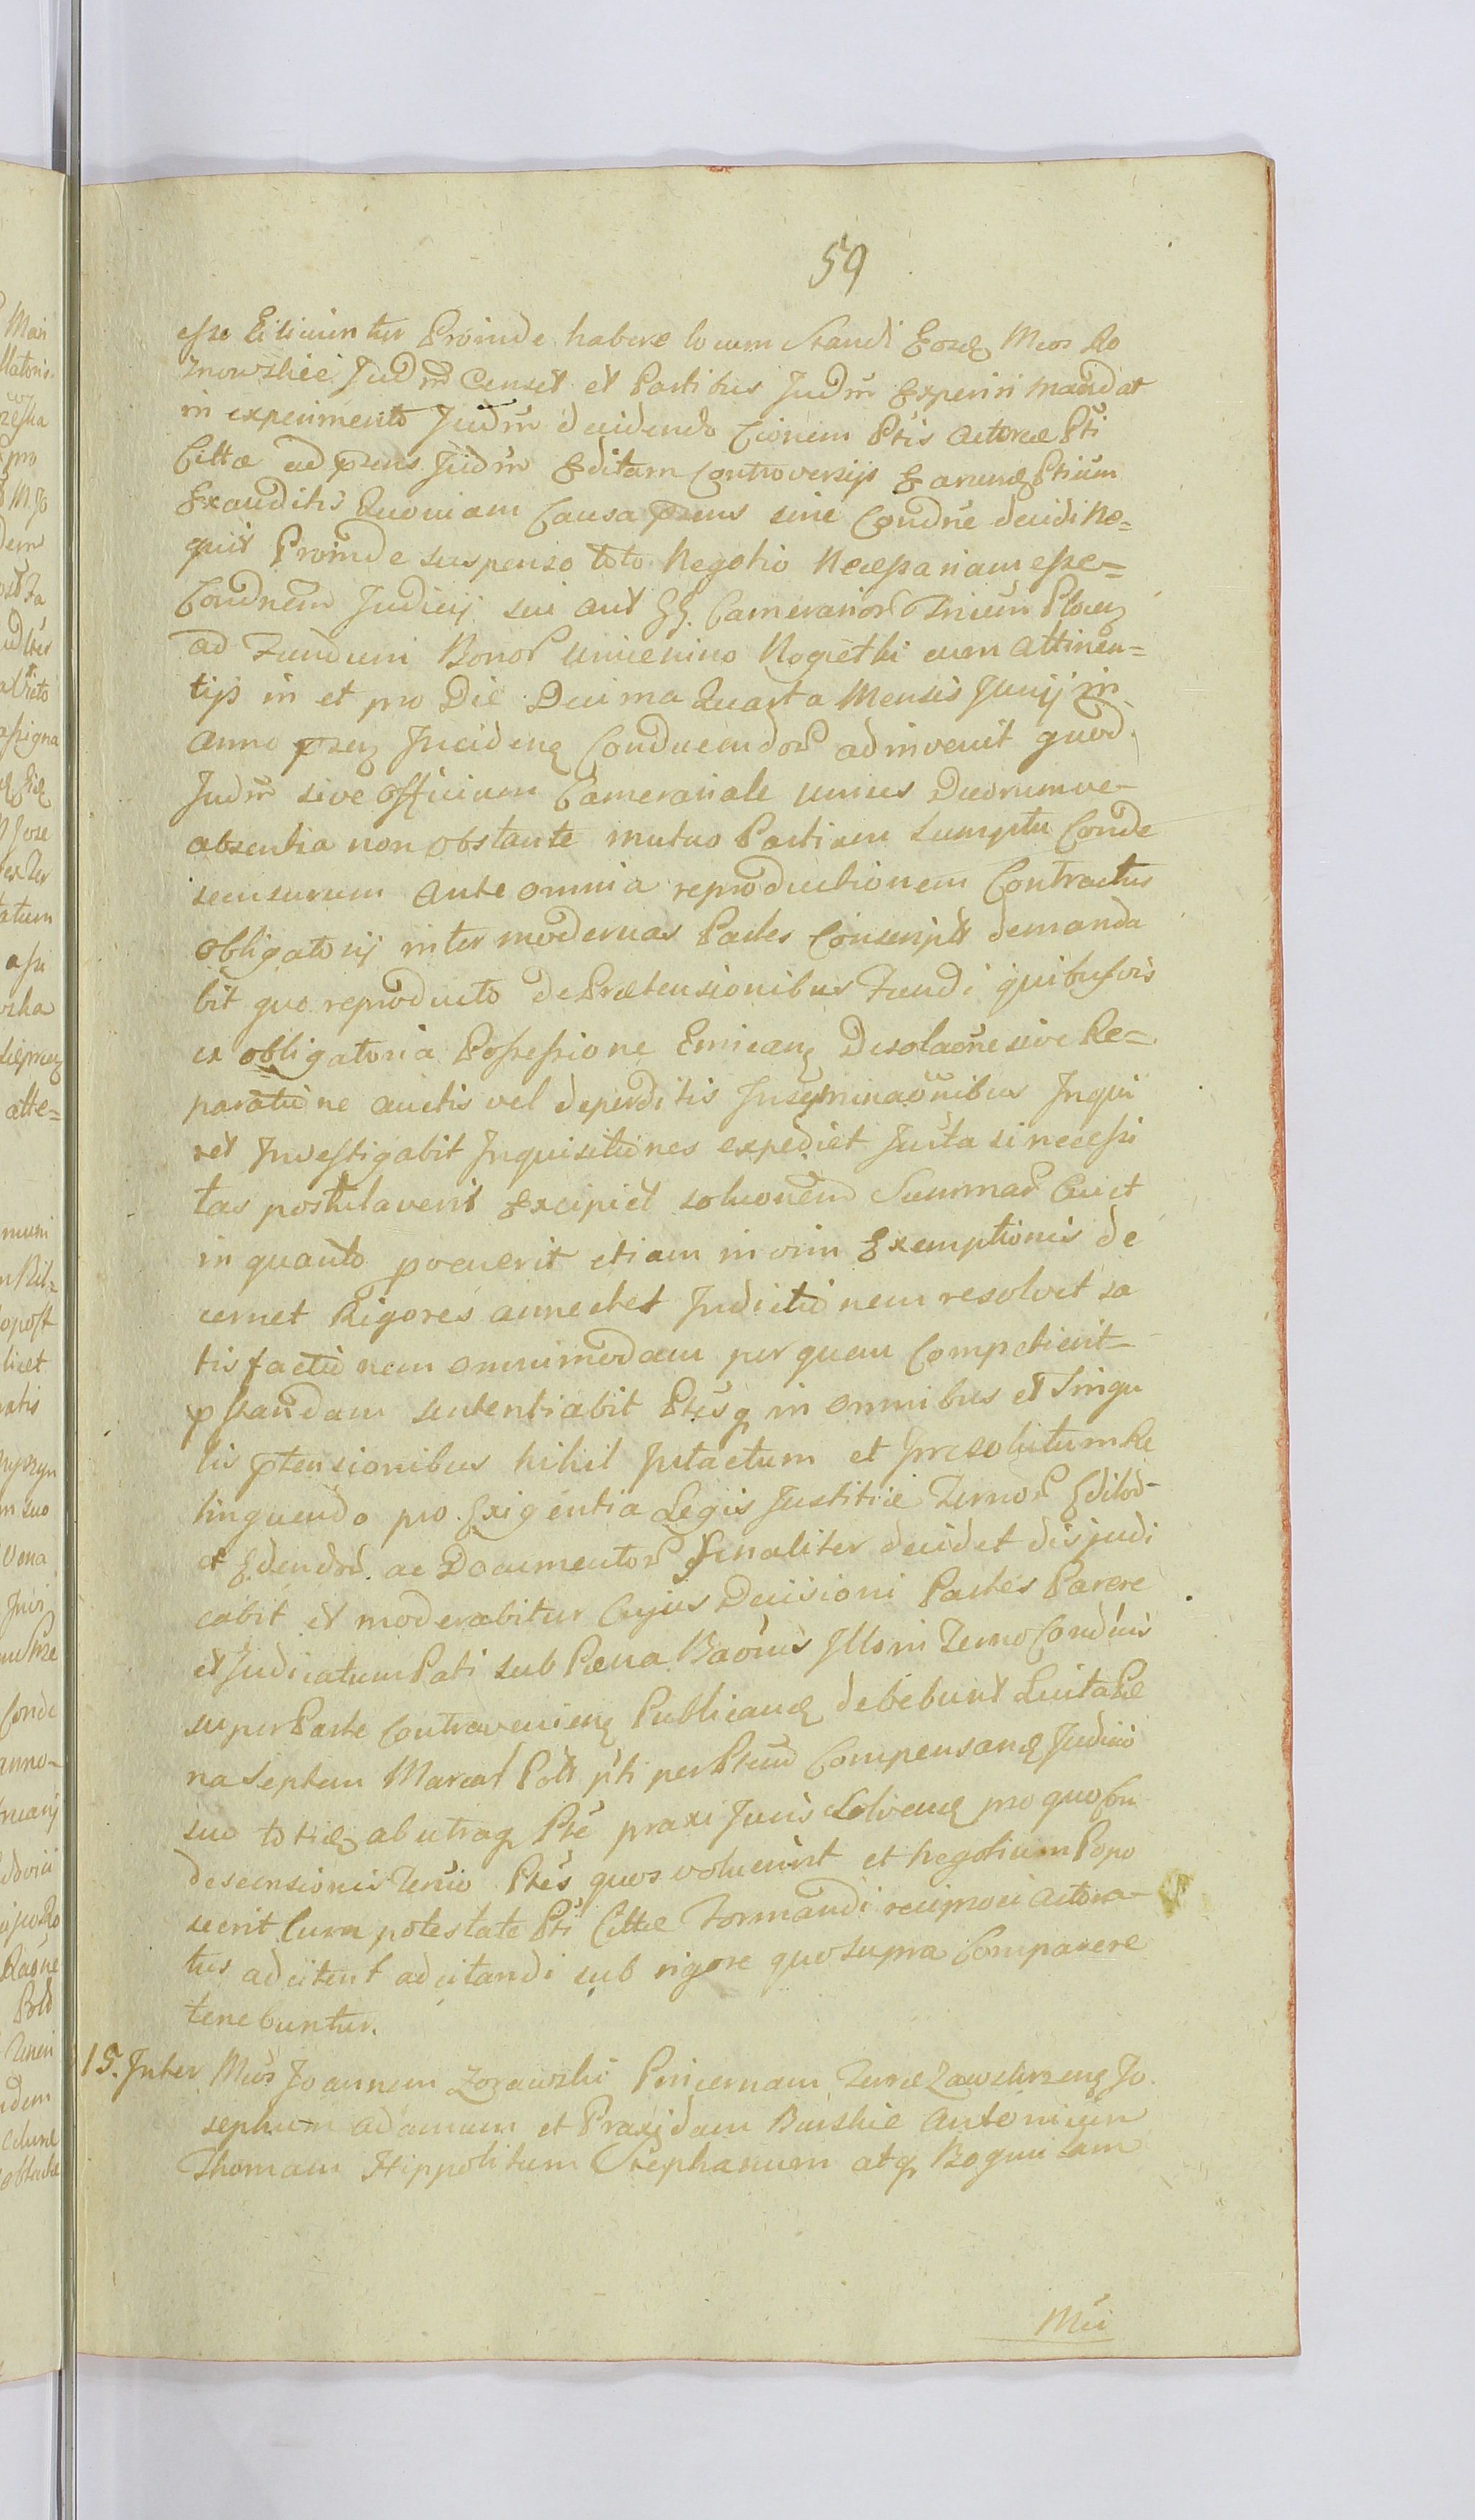 59
esse Eliciuntur Proinde habere locum Standi Eosdq Mcos Ro
znowskie Judm Censet et Partibus Judm Experiri mandat
in experimento Judm decidendo Cionem Ptis Actoreæ Pti
Cittæ ad præns Judm Editam Controversijs Earundq Ptium
Exauditis Quoniam Causa præns sine Condne decidi Ne=
quit Proinde suspenso toto Negotio Necessariam esse=
Condnem Judicij sui aut GG. Camerarior Trium Plocen
ad Fundum Bonor Uniemino Rogietki cum Attinen=
tijs in et pro Die Decima Quarta Mensis Junij in
anno præn Incidenq Conducendor adinvenit quod
Judm sive Officium Camerariale unius Duorumve
absentia non obstante mutuo Partium Sumptu Conde
scensurum Ante omnia reproductionem Contractus
Obligatorij inter modernas Partes Conscript demanda
bit quo reproducto de Prætensionibus Fundi quibusvis
ex obligatoria Possessione Emican Desolaone sive Re=
paratione auctis vel deperditis Inseminaonibus Inqui
ret Investigabit Inquisitiones expediet Jurta si necessi
tas postulaverit Excipiet soluonem Summar Cuict
in quanto pvenerit etiam in vim Exemptionis de
cernet Rigores annectet Inductionem resolvet sa
tisfactionem omnimodam per quem Competierit
pstandam sententiabit Ptesq in omnibus et Singu
lis ptensionibus nihil Intactum et Irresolutum Re
linquendo pro Exigentia Legis Justitiæ Terror Editor
et Edendor ac Documentor Finaliter decidet disjudi
cabit et moderabitur Cujus Decisioni Partes Parere
et Judicatum Pati sub Pœna Baonis Illorum Termo Condnis
super Parte Contravenienq Publicand debebunt Luita Pœ
na Septem Marcar Polł pti per Ptem Compensand Judicio
suo toties ab utraq Pte praxi Juris Solvend pro quo Con
descensionis Termo Ptes quos voluerint et Negotium Popo
scerit Cum potestate Pti Cittæ Formandi reciproci Actora=
tus adcitent adcitandi sub rigore quo supra Comparere
tenebuntur.
15. Inter Mcos Joannem Zorawski Pincernam Terræ Zawskrzenq Jo
sephum Adamum et Praxedam Burskie Antonium
Thomam Hippolitum Stephanum atq Bogumilam
Mci